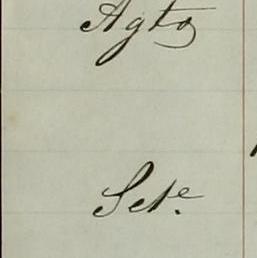 Agto
Sete.